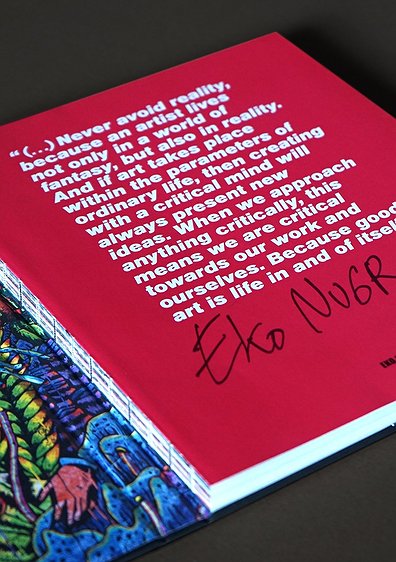 “(...) Never avoid reality,
because an artist lives
not only in a world of
fantasy, but also in reality.
And if art takes place
within the parameters of
ordinary life, then creating
with a critical mind will
always present new
ideas. When we approach
anything critically, this
means we are critical
towards our work and
ourselves. Because good
art is life in and of itsel
Eko NUGR